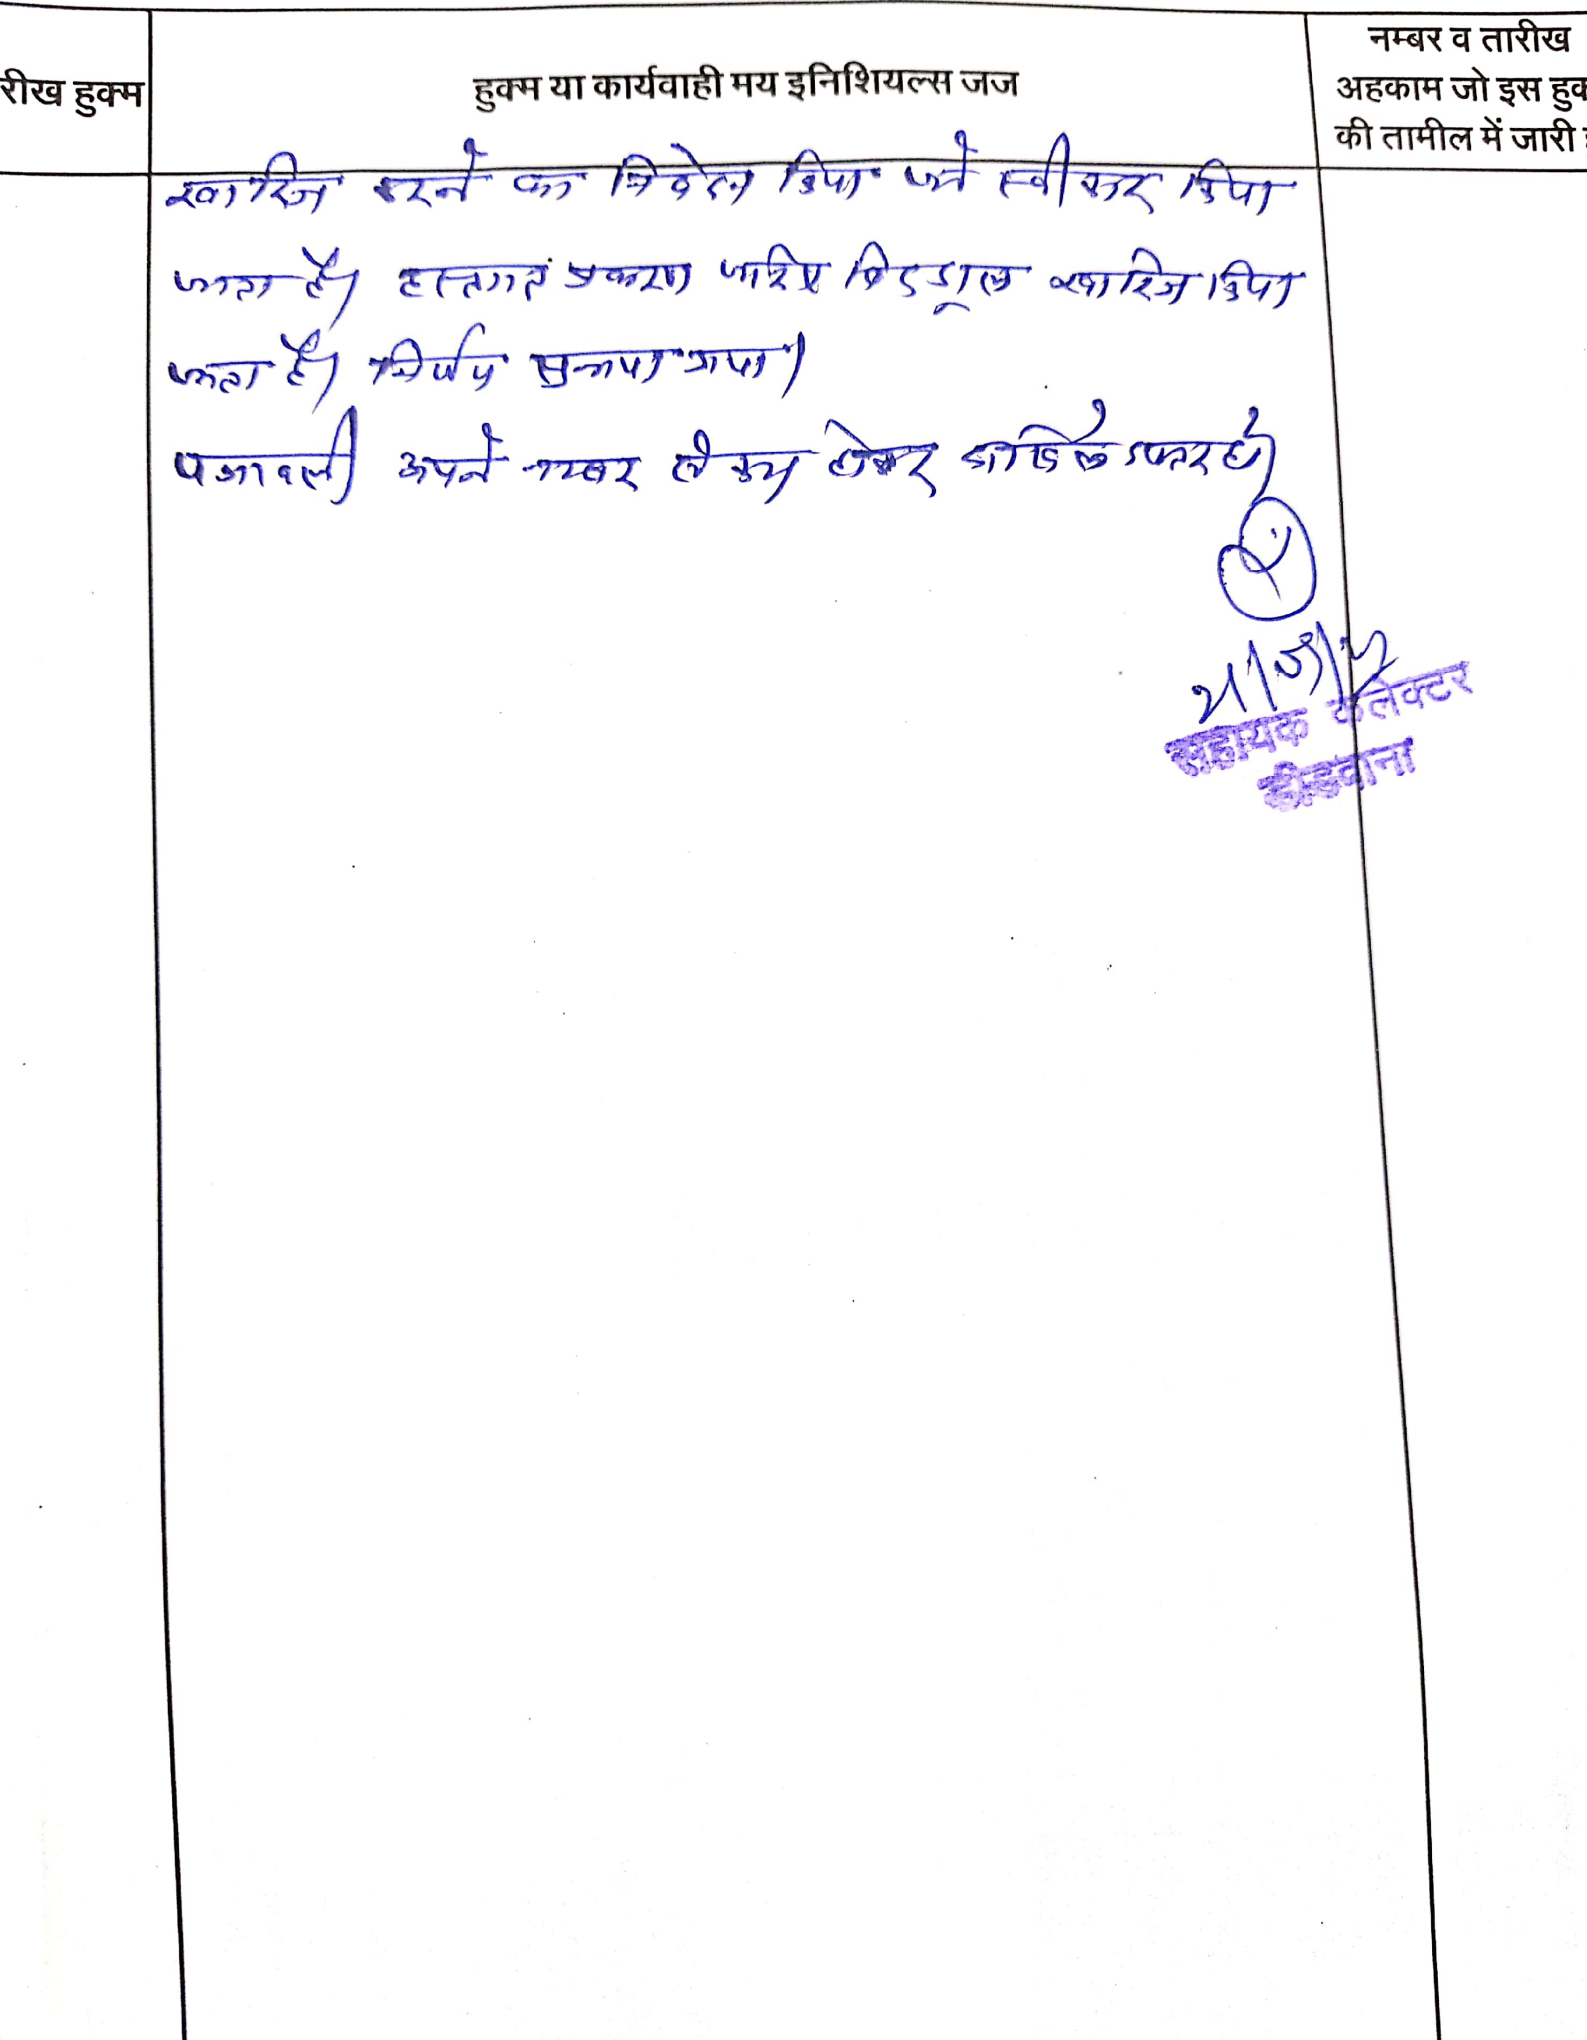 रीख हुक्म
हुक्म या कार्यवाही मय इनिशियल्स जज
नम्बर व तारीख
अहकाम जो इस हुक
की तामील में जारी
खारिज करने का निवेदन किया जो स्वीकार किया
जाता है। हस्तगत प्रकरण जरिए विड्रॉल खारिज किया
जाता है। निर्णय सुनाया गया।
पत्रावली अपने नम्बर से कम होकर दाखिल दफ्तर हो।
सहायक कलेक्टर
डीडवाना